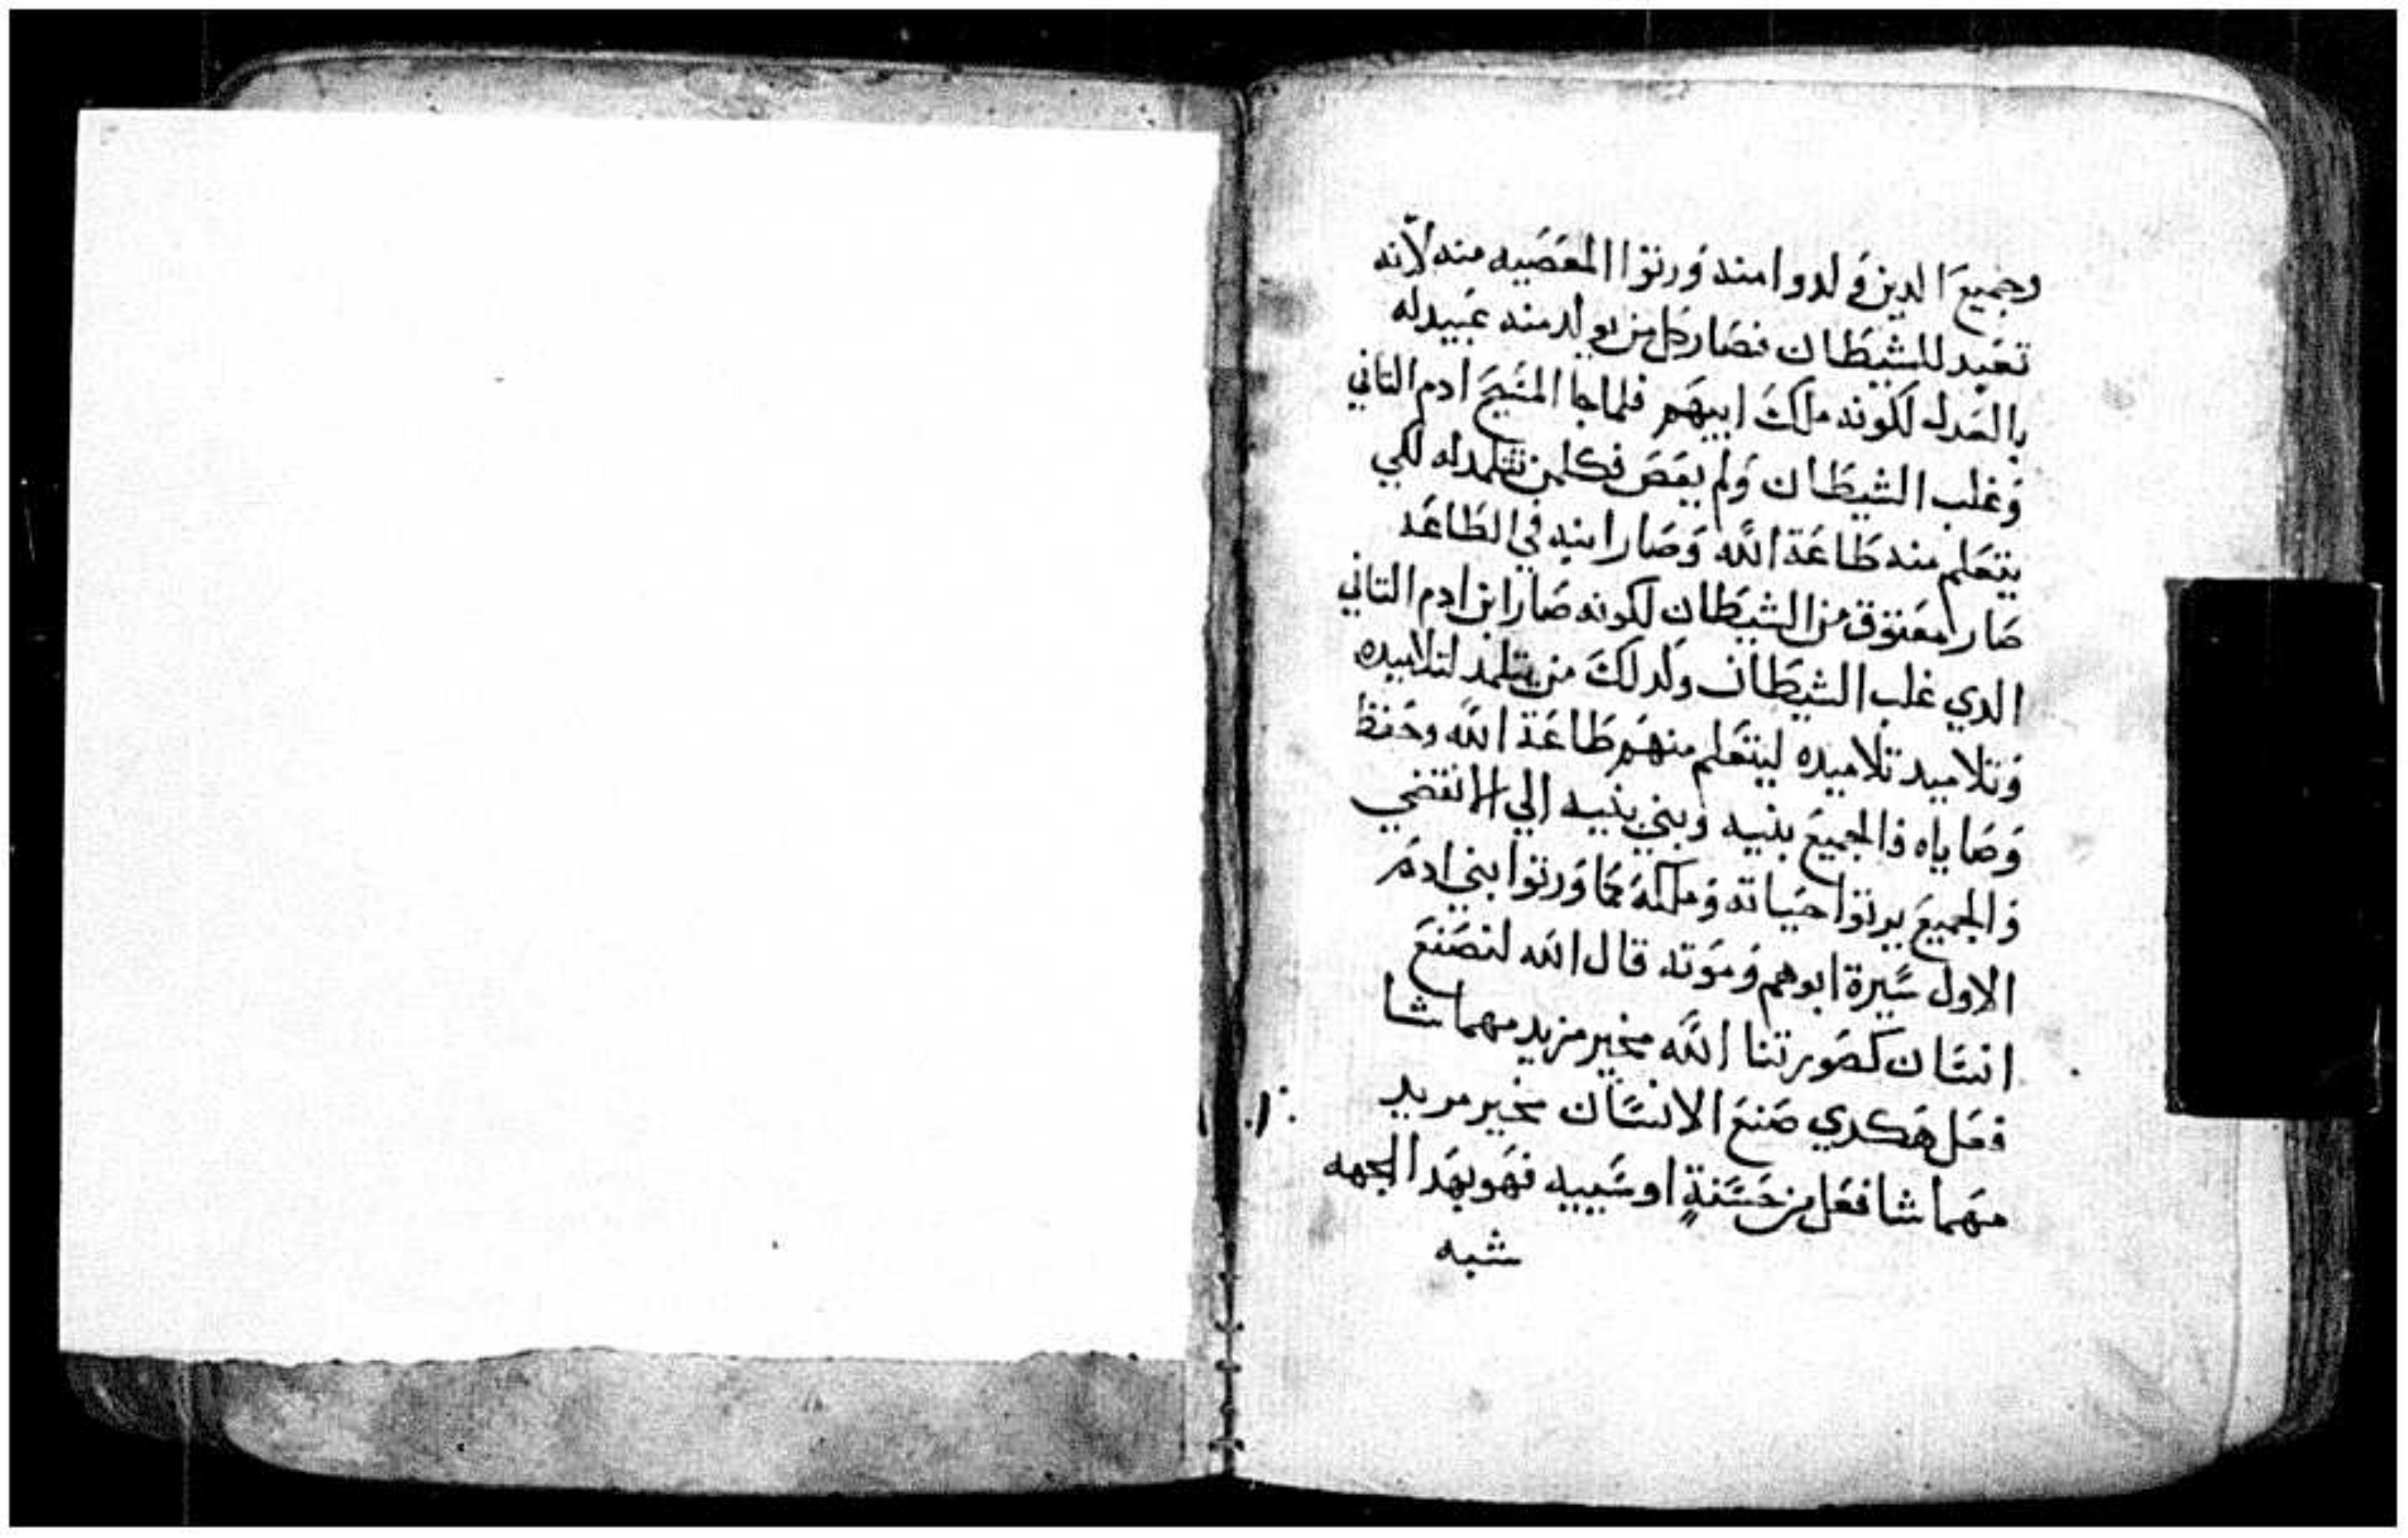 وجميع الدين ولدوا منه ورتوا المعصيه منه لانه
تعبد للشيطان فصار كل من يولد منه عبيد له
بالعدل لكونه ملك ابيهم فلما جا المسيح ادم التاني
وغلب الشيطان ولم يعص فكلمن تتلمد له لكي
يتعلم منه طاعة الله وصار ابنه في الطاعه
صار معتوق من الشيطان لكونه صار ابن ادم التاني
الدي غلب الشيطان ولدلك من يتلمد لتلاميده
وتلاميد تلاميده ليتعلم منهم طاعة الله وحفظ
وصاياه فالجميع بنيه وبني بنيه الي الانقضي
والجميع يرتوا حياته وملكه كما ورتوا بني ادم
الاول سيرة ابوهم وموته قال الله لنصنع
انسان كصورتنا الله مخير مريد مهما شا
فعل هكدي صنع الانسان مخير مريد
مهما شا فعل من حسنة او سييه فهو بهدا الجهه
شبه